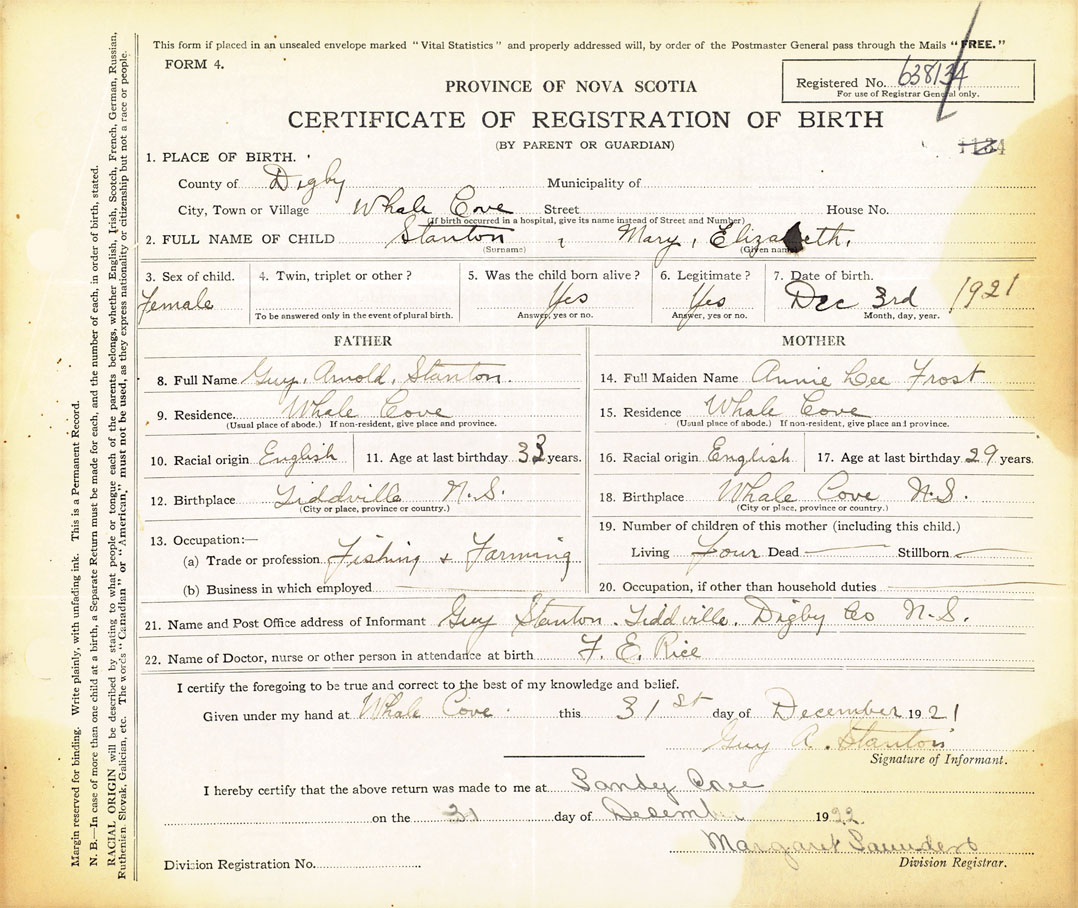 This form if placed in an unsealed envelope marked "Vital Statistics" and properly addressed will, by order of the Postmaster General pass through the Mails "FREE."
FORM 4.
Registered No. 638134
For use of Registrar General only.
PROVINCE OF NOVA SCOTIA
CERTIFICATE OF REGISTRATION OF BIRTH
(BY PARENT OR GUARDIAN)
1. PLACE OF BIRTH.
County of Digby Municipality of
City, Town or Village Whale Cove Street House No.
(If birth occurred in a hospital, give its name instead of Street and Number)
2. FULL NAME OF CHILD Stanton, Mary, Elizabeth.
(Surname) (Given name)
3. Sex of child. 4. Twin, triplet or other? 5. Was the child born alive? 6. Legitimate? 7. Date of birth.
Female Yes Yes Dec 3rd 1921
To be answered only in the event of plural birth. Answer, yes or no. Answer, yes or no. Month, day, year.
FATHER
8. Full Name Guy, Arnold, Stanton.
9. Residence. Whale Cove
(Usual place of abode.) If non-resident, give place and province.
10. Racial origin English 11. Age at last birthday 33 years.
12. Birthplace Tiddville N.S.
(City or place, province or country.)
13. Occupation:—
(a) Trade or profession Fishing & Farming
(b) Business in which employed
MOTHER
14. Full Maiden Name Annie Lee Frost
15. Residence Whale Cove
(Usual place of abode.) If non-resident, give place and province.
16. Racial origin English 17. Age at last birthday 29 years.
18. Birthplace Whale Cove N.S.
(City or place, province or country.)
19. Number of children of this mother (including this child.)
Living Four Dead — Stillborn —
20. Occupation, if other than household duties
21. Name and Post Office address of Informant Guy Stanton. Tiddville. Digby Co N.S.
22. Name of Doctor, nurse or other person in attendance at birth F. E. Rice
I certify the foregoing to be true and correct to the best of my knowledge and belief.
Given under my hand at Whale Cove. this 31st day of December 1921
Guy A. Stanton
Signature of Informant.
I hereby certify that the above return was made to me at Sandy Cove
on the 31 day of December 1922.
Margaret Saunders
Division Registrar.
Division Registration No.
Margin reserved for binding. Write plainly, with unfading ink. This is a Permanent Record.
N. B.—In case of more than one child at a birth, a Separate Return must be made for each, and the number of each, in order of birth, stated.
RACIAL ORIGIN will be described by stating to what people or tongue each of the parents belongs, whether English, Irish, Scotch, French, German, Russian,
Ruthenian, Slovak, Galician, etc. The words "Canadian" or "American," must not be used, as they express nationality or citizenship but not a race or people.